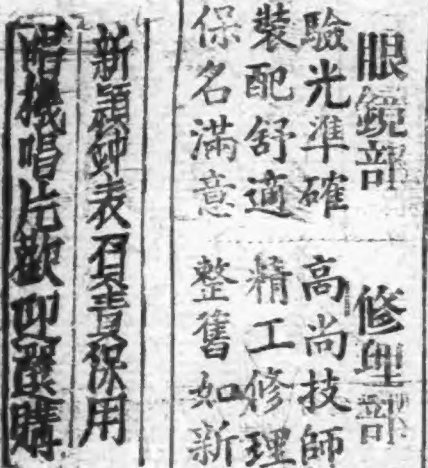 眼鏡部
驗光準確
裝配舒適
保名滿意
修理部
高尚技師
精工修理
整舊如新
新穎鐘表負責保用
唱機唱片歡迎選購